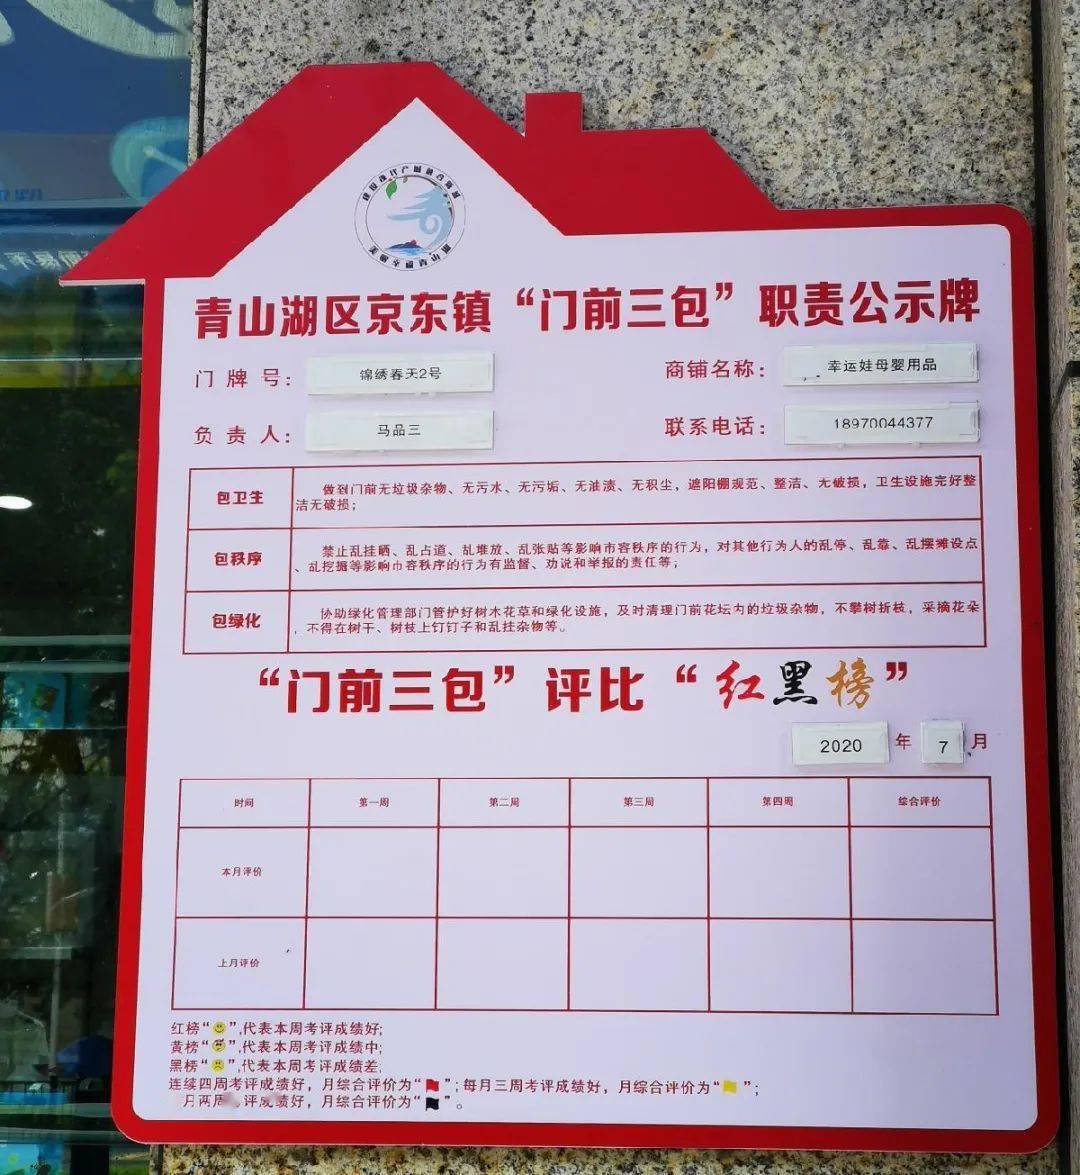 青山湖区京东镇“门前三包”职责公示牌
门牌号： 锦绣春天2号 商铺名称： 幸运娃母婴用品
负责人： 马品三 联系电话： 18970044377
包卫生 做到门前无垃圾杂物、无污水、无污垢、无油渍、无积尘，遮阳棚规范、整洁、无破损，卫生设施完好整
洁无破损；
包秩序 禁止乱挂晒、乱占道、乱堆放、乱张贴等影响市容秩序的行为，对其他行为人的乱停、乱靠、乱摆摊设点
、乱挖掘等影响市容秩序的行为有监督、劝说和举报的责任等；
包绿化 协助绿化管理部门管护好树木花草和绿化设施，及时清理门前花坛内的垃圾杂物，不攀树折枝，采摘花朵
，不得在树干、树枝上钉钉子和乱挂杂物等。
“门前三包”评比“红黑榜”
2020 年 7 月
时间 第一周 第二周 第三周 第四周 综合评价
本月评价
上月评价
红榜“”,代表本周考评成绩好;
黄榜“”,代表本周考评成绩中;
黑榜“”,代表本周考评成绩差;
连续四周考评成绩好，月综合评价为“”；每月三周考评成绩好，月综合评价为“”；
月两周 评成绩好，月综合评价为“”。